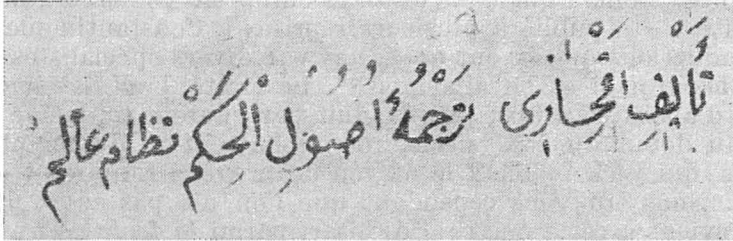 تَأْلِيفِ اَقْحِصَارِى تَرْجَمَۀُ اُصُولِ الْحِكَمْ نِظَام عَالَم